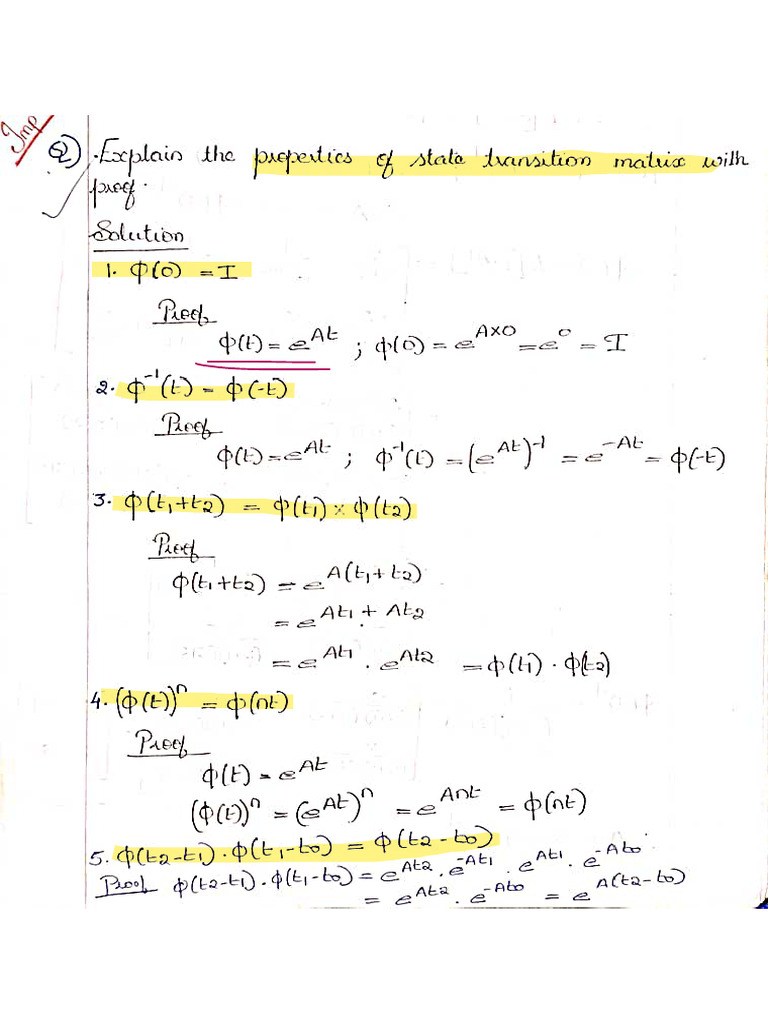 Imp
Q). Explain the properties of state transition matrix with
proof.
Solution
1. Φ(0) = I
Proof
Φ(t) = e^At ; Φ(0) = e^A×0 = e^0 = I
2. Φ^-1(t) = Φ(-t)
Proof
Φ(t) = e^At ; Φ^-1(t) = (e^At)^-1 = e^-At = Φ(-t)
3. Φ(t1+t2) = Φ(t1) × Φ(t2)
Proof
Φ(t1+t2) = e^A(t1+t2)
= e^At1 + At2
= e^At1 . e^At2 = Φ(t1) . Φ(t2)
4. (Φ(t))^n = Φ(nt)
Proof
Φ(t) = e^At
(Φ(t))^n = (e^At)^n = e^Ant = Φ(nt)
5. Φ(t2-t1) . Φ(t1-t0) = Φ(t2-t0)
Proof Φ(t2-t1) . Φ(t1-t0) = e^At2 . e^-At1 . e^At1 . e^-At0
= e^At2 . e^-At0 = e^A(t2-t0)